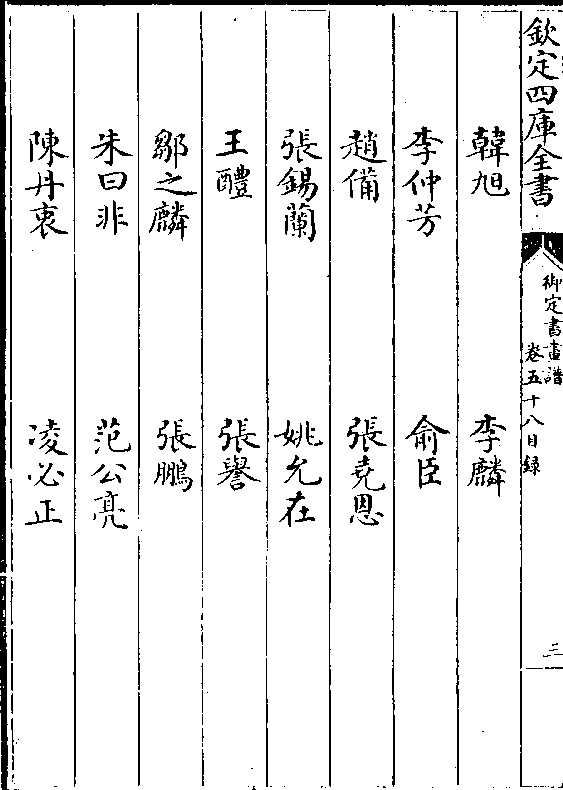 欽定四庫全書
御定書畫譜
卷五十八目録
三
韓旭 李麟
李仲芳 俞臣
趙備 張堯恩
張錫蘭 姚允在
王醴 張譽
鄒之麟 張鵬
朱曰非 范公亮
陳丹衷 凌必正